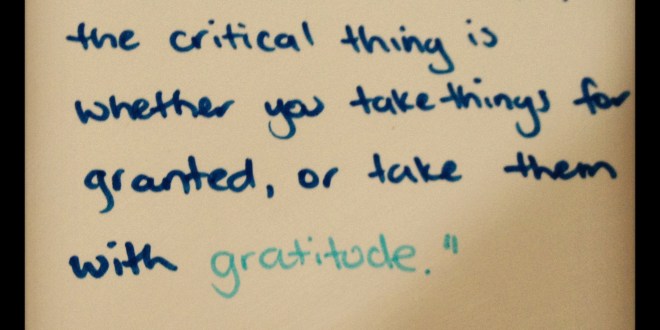 the critical thing is
whether you take things for
granted, or take them
with gratitude."